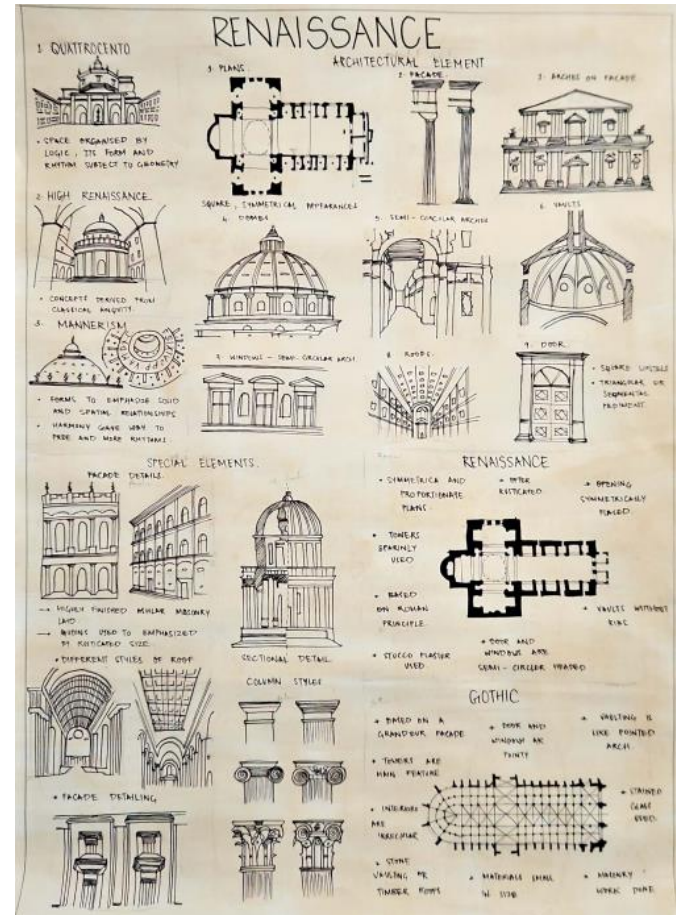 RENAISSANCE
ARCHITECTURAL ELEMENT
1. QUATTROCENTO
• SPACE ORGANISED BY
LOGIC, ITS FORM AND
RHYTHM SUBJECT TO GEOMETRY
2. HIGH RENAISSANCE
• CONCEPTS DERIVED FROM
CLASSICAL
3. MANNERISM
• FORMS TO EMPHASIZE SOLID
AND SPATIAL RELATIONSHIPS
• HARMONY GAVE WAY TO
FREE AND MORE RHYTHMS.
1. PLANS.
SQUARE, SYMMETRICAL APPEARANCES
2. FACADE.
3. ARCHES ON FACADE
4. DOMES
5. SEMI-CIRCULAR ARCHES
6. VAULTS
7. WINDOWS - SEMI-CIRCULAR ARCH
8. ROOFS.
9. DOOR
• SQUARE LINTELS
• TRIANGULAR OR
SEGMENTAL
PEDIMENT.
SPECIAL ELEMENTS.
FACADE DETAILS.
→ HIGHLY FINISHED ASHLAR MASONRY
LAID
→ USED TO EMPHASIZED
BY RUSTICATED SIZE.
• DIFFERENT STYLES OF ROOF
• FACADE DETAILING
SECTIONAL DETAIL
COLUMN STYLES
RENAISSANCE
• SYMMETRICA AND
PROPORTIONATE
PLANS
• OFTEN
RUSTICATED
• OPENING
SYMMETRICALLY
PLACED.
• TOWERS
SPARINLY
USED
• BASED
ON ROMAN
PRINCIPLE.
• VAULTS WITHOUT
RIBS
• STUCCO PLASTER
USED
• DOOR AND
WINDOWS ARE
SEMI-CIRCLR HEADED
GOTHIC
• BASED ON A
GRANDEUR FACADE
• DOOR AND
WINDOW AR
POINTY
• VAULTING IS
LIKE POINTED
ARCH.
• TOWERS ARE
MAIN FEATURE
• INTERIORS
ARE
IRREGULAR
• STAINED
GLASS
USED.
• STONE
VAULING OR
TIMBER ROOFS
• MATERIALS SMALL
IN SIZE
• MASONRY
WORK DONE